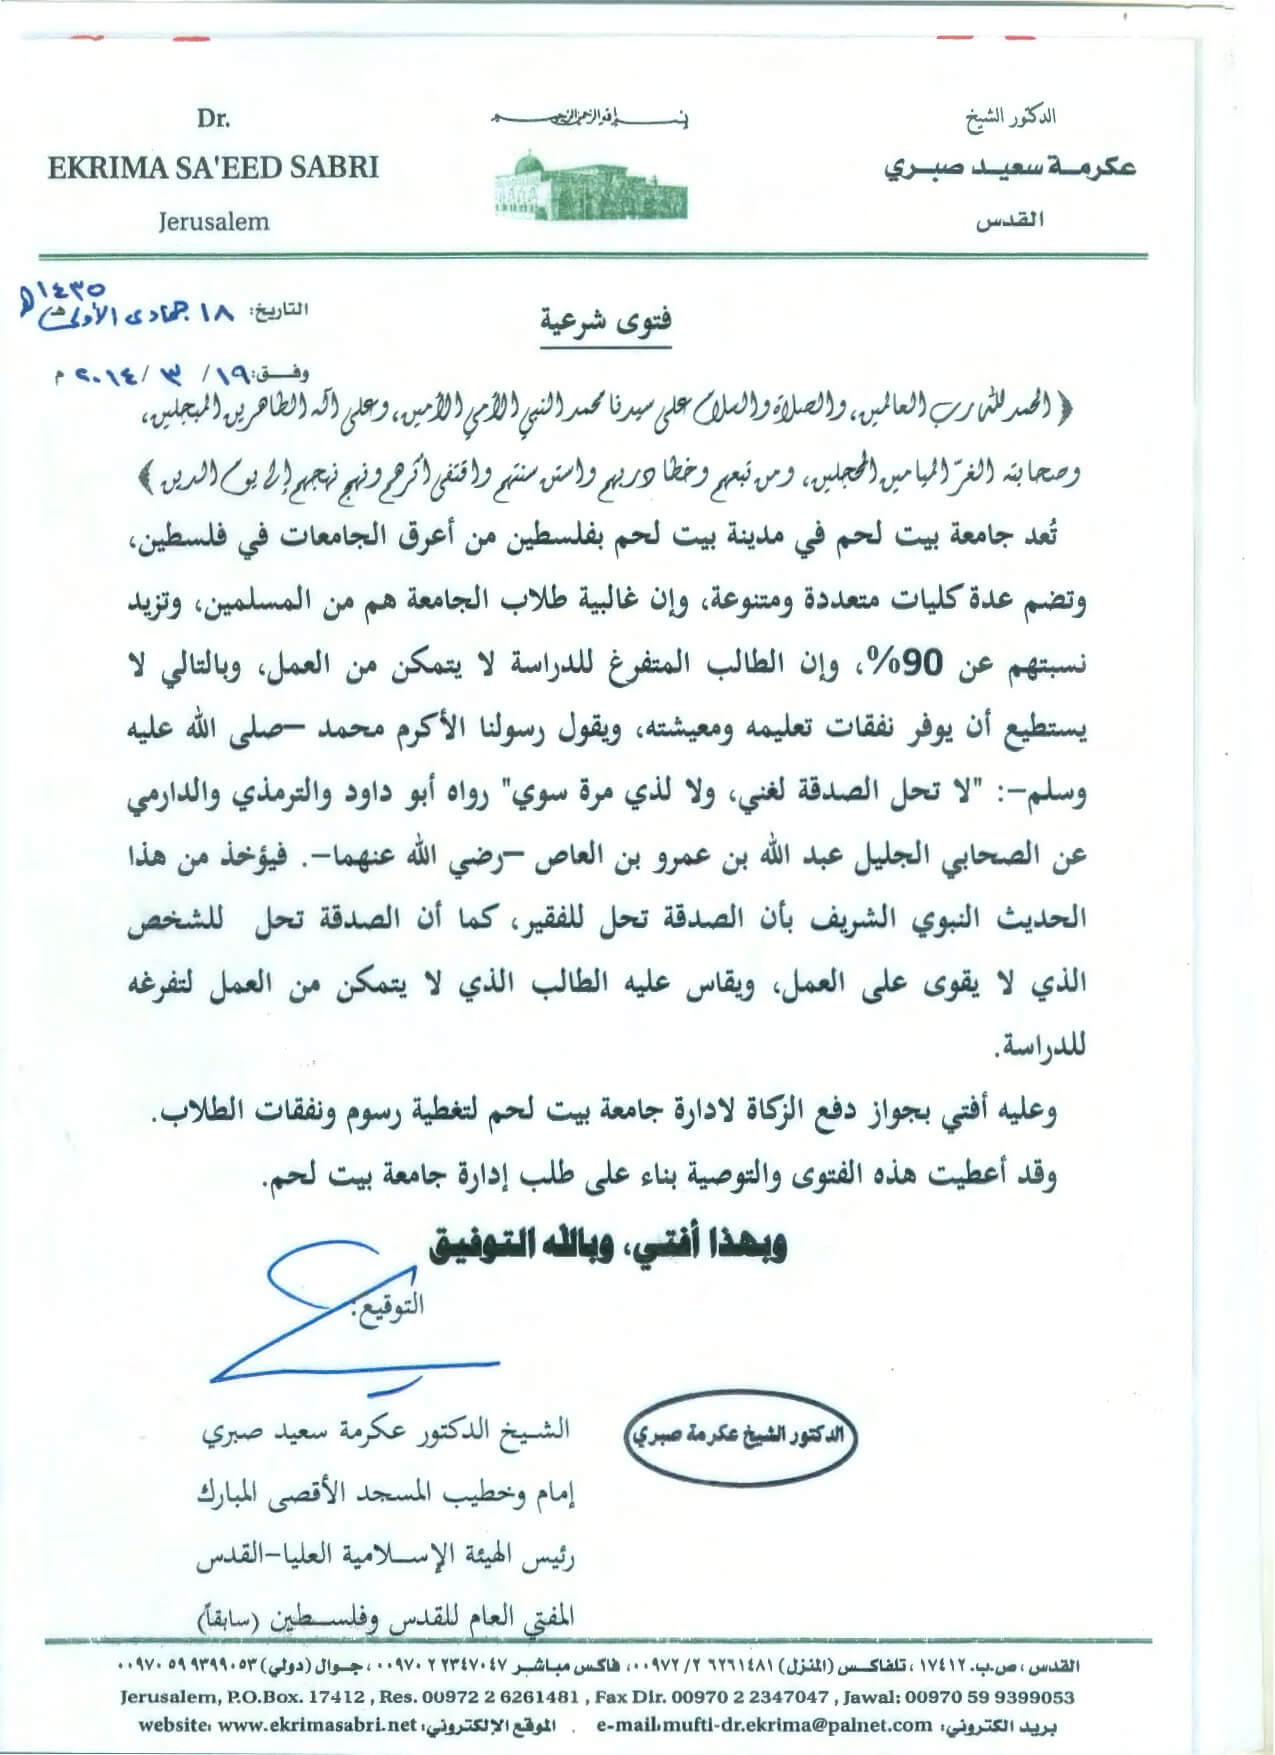 Dr.
EKRIMA SA'EED SABRI
Jerusalem
الدكتور الشيخ
عكرمة سعيد صبري
القدس
التاريخ: ١٨ جمادى الأولى ١٤٣٥ هـ
وفق: ١٩ / ٣ / ٢٠١٤ م
فتوى شرعية
﴿ الحمد لله رب العالمين، والصلاة والسلام على سيدنا محمد النبي الأمي الأمين، وعلى آله الطاهرين المبجلين،
وصحابته الغرّ الميامين المحجلين، ومن تبعهم وخطا دربهم واستن سنتهم واقتفى أثرهم ونهج نهجهم إلى يوم الدين ﴾
تُعد جامعة بيت لحم في مدينة بيت لحم بفلسطين من أعرق الجامعات في فلسطين،
وتضم عدة كليات متعددة ومتنوعة، وإن غالبية طلاب الجامعة هم من المسلمين، وتزيد
نسبتهم عن 90%، وإن الطالب المتفرغ للدراسة لا يتمكن من العمل، وبالتالي لا
يستطيع أن يوفر نفقات تعليمه ومعيشته، ويقول رسولنا الأكرم محمد –صلى الله عليه
وسلم–: "لا تحل الصدقة لغني، ولا لذي مرة سوي" رواه أبو داود والترمذي والدارمي
عن الصحابي الجليل عبد الله بن عمرو بن العاص –رضي الله عنهما–. فيؤخذ من هذا
الحديث النبوي الشريف بأن الصدقة تحل للفقير، كما أن الصدقة تحل للشخص
الذي لا يقوى على العمل، ويقاس عليه الطالب الذي لا يتمكن من العمل لتفرغه
للدراسة.
وعليه أفتي بجواز دفع الزكاة لادارة جامعة بيت لحم لتغطية رسوم ونفقات الطلاب.
وقد أعطيت هذه الفتوى والتوصية بناء على طلب إدارة جامعة بيت لحم.
وبهذا أفتي، وبالله التوفيق
التوقيع:
الدكتور الشيخ عكرمة صبري
الشيخ الدكتور عكرمة سعيد صبري
إمام وخطيب المسجد الأقصى المبارك
رئيس الهيئة الإسلامية العليا–القدس
المفتي العام للقدس وفلسطين (سابقاً)
القدس، ص.ب. ١٧٤١٢، تلفاكس (المنزل) ٠٠٩٧٢/٢ ٦٢٦١٤٨١، فاكس مباشر ٠٠٩٧٠ ٢ ٢٣٤٧٠٤٧، جوال (دولي) ٠٠٩٧٠ ٥٩ ٩٣٩٩٠٥٣
Jerusalem, P.O.Box. 17412 , Res. 00972 2 6261481 , Fax Dir. 00970 2 2347047 , Jawal: 00970 59 9399053
website: www.ekrimasabri.net الموقع الإلكتروني: . e-mail:mufti-dr.ekrima@palnet.com بريد الكتروني: